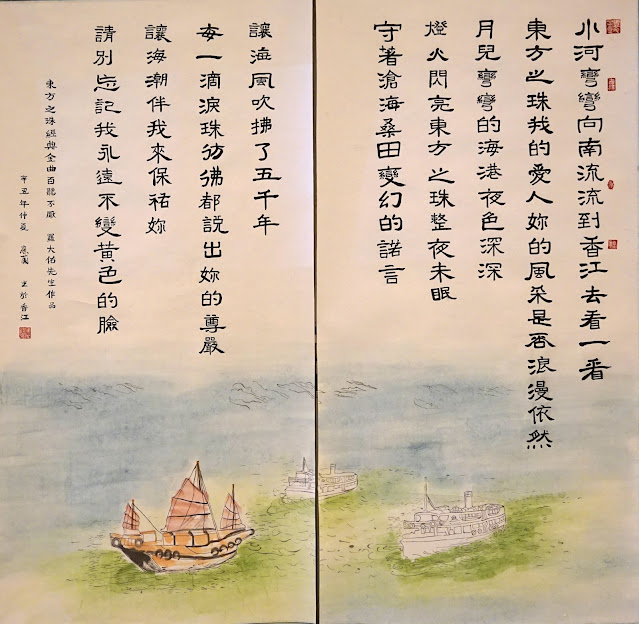 小河彎彎向南流流到香江去看一看
東方之珠我的愛人妳的風采是否浪漫依然
月兒彎彎的海港夜色深深
燈火閃亮東方之珠整夜未眠
守著滄海桑田變幻的諾言
讓海風吹拂了五千年
每一滴淚珠彷彿都說出妳的尊嚴
讓海潮伴我來保祐妳
請別忘記我永遠不變黃色的臉
東方之珠經典金曲百聽不厭 羅大佑先生作品
辛丑年仲夏 於香江